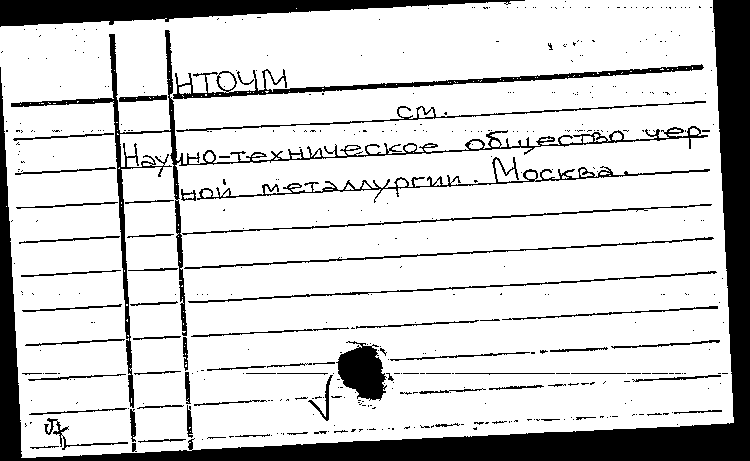 НТОЧМ
см.
Научно-техническое общество чер-
ной металлургии. Москва.